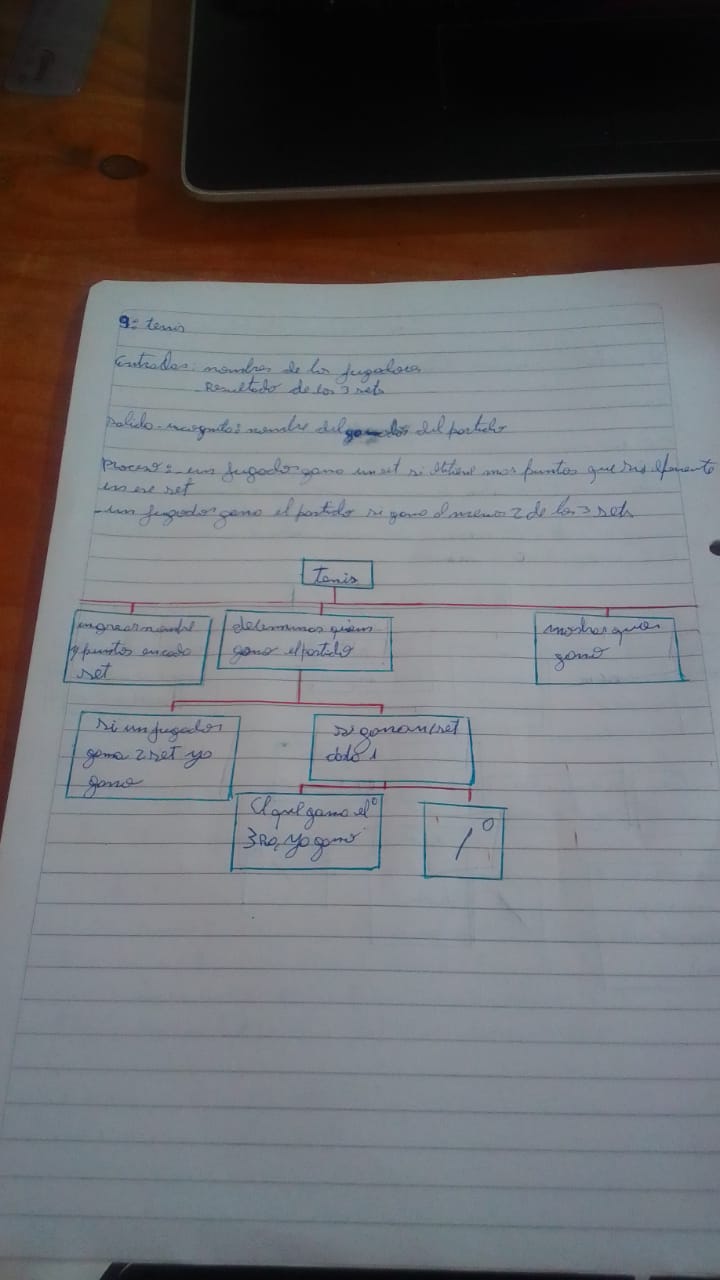 9: tenis
Entradas: nombres de los jugadores
- Resultado de los 3 sets
Salida - incognita: nombre del ganador del partido
Proceso: - un jugador gana un set si obtiene mas puntos que su oponente
en ese set
- un jugador gana el partido si gana al menos 2 de los 3 sets
tenis
ingresar nombre
y puntos en cada
set
determinar quien
gano el partido
mostrar quien
gano
si un jugador
gana 2 set ya
gano
si ganan 1 set
cada 1
El que gana el
3ro, ya gano